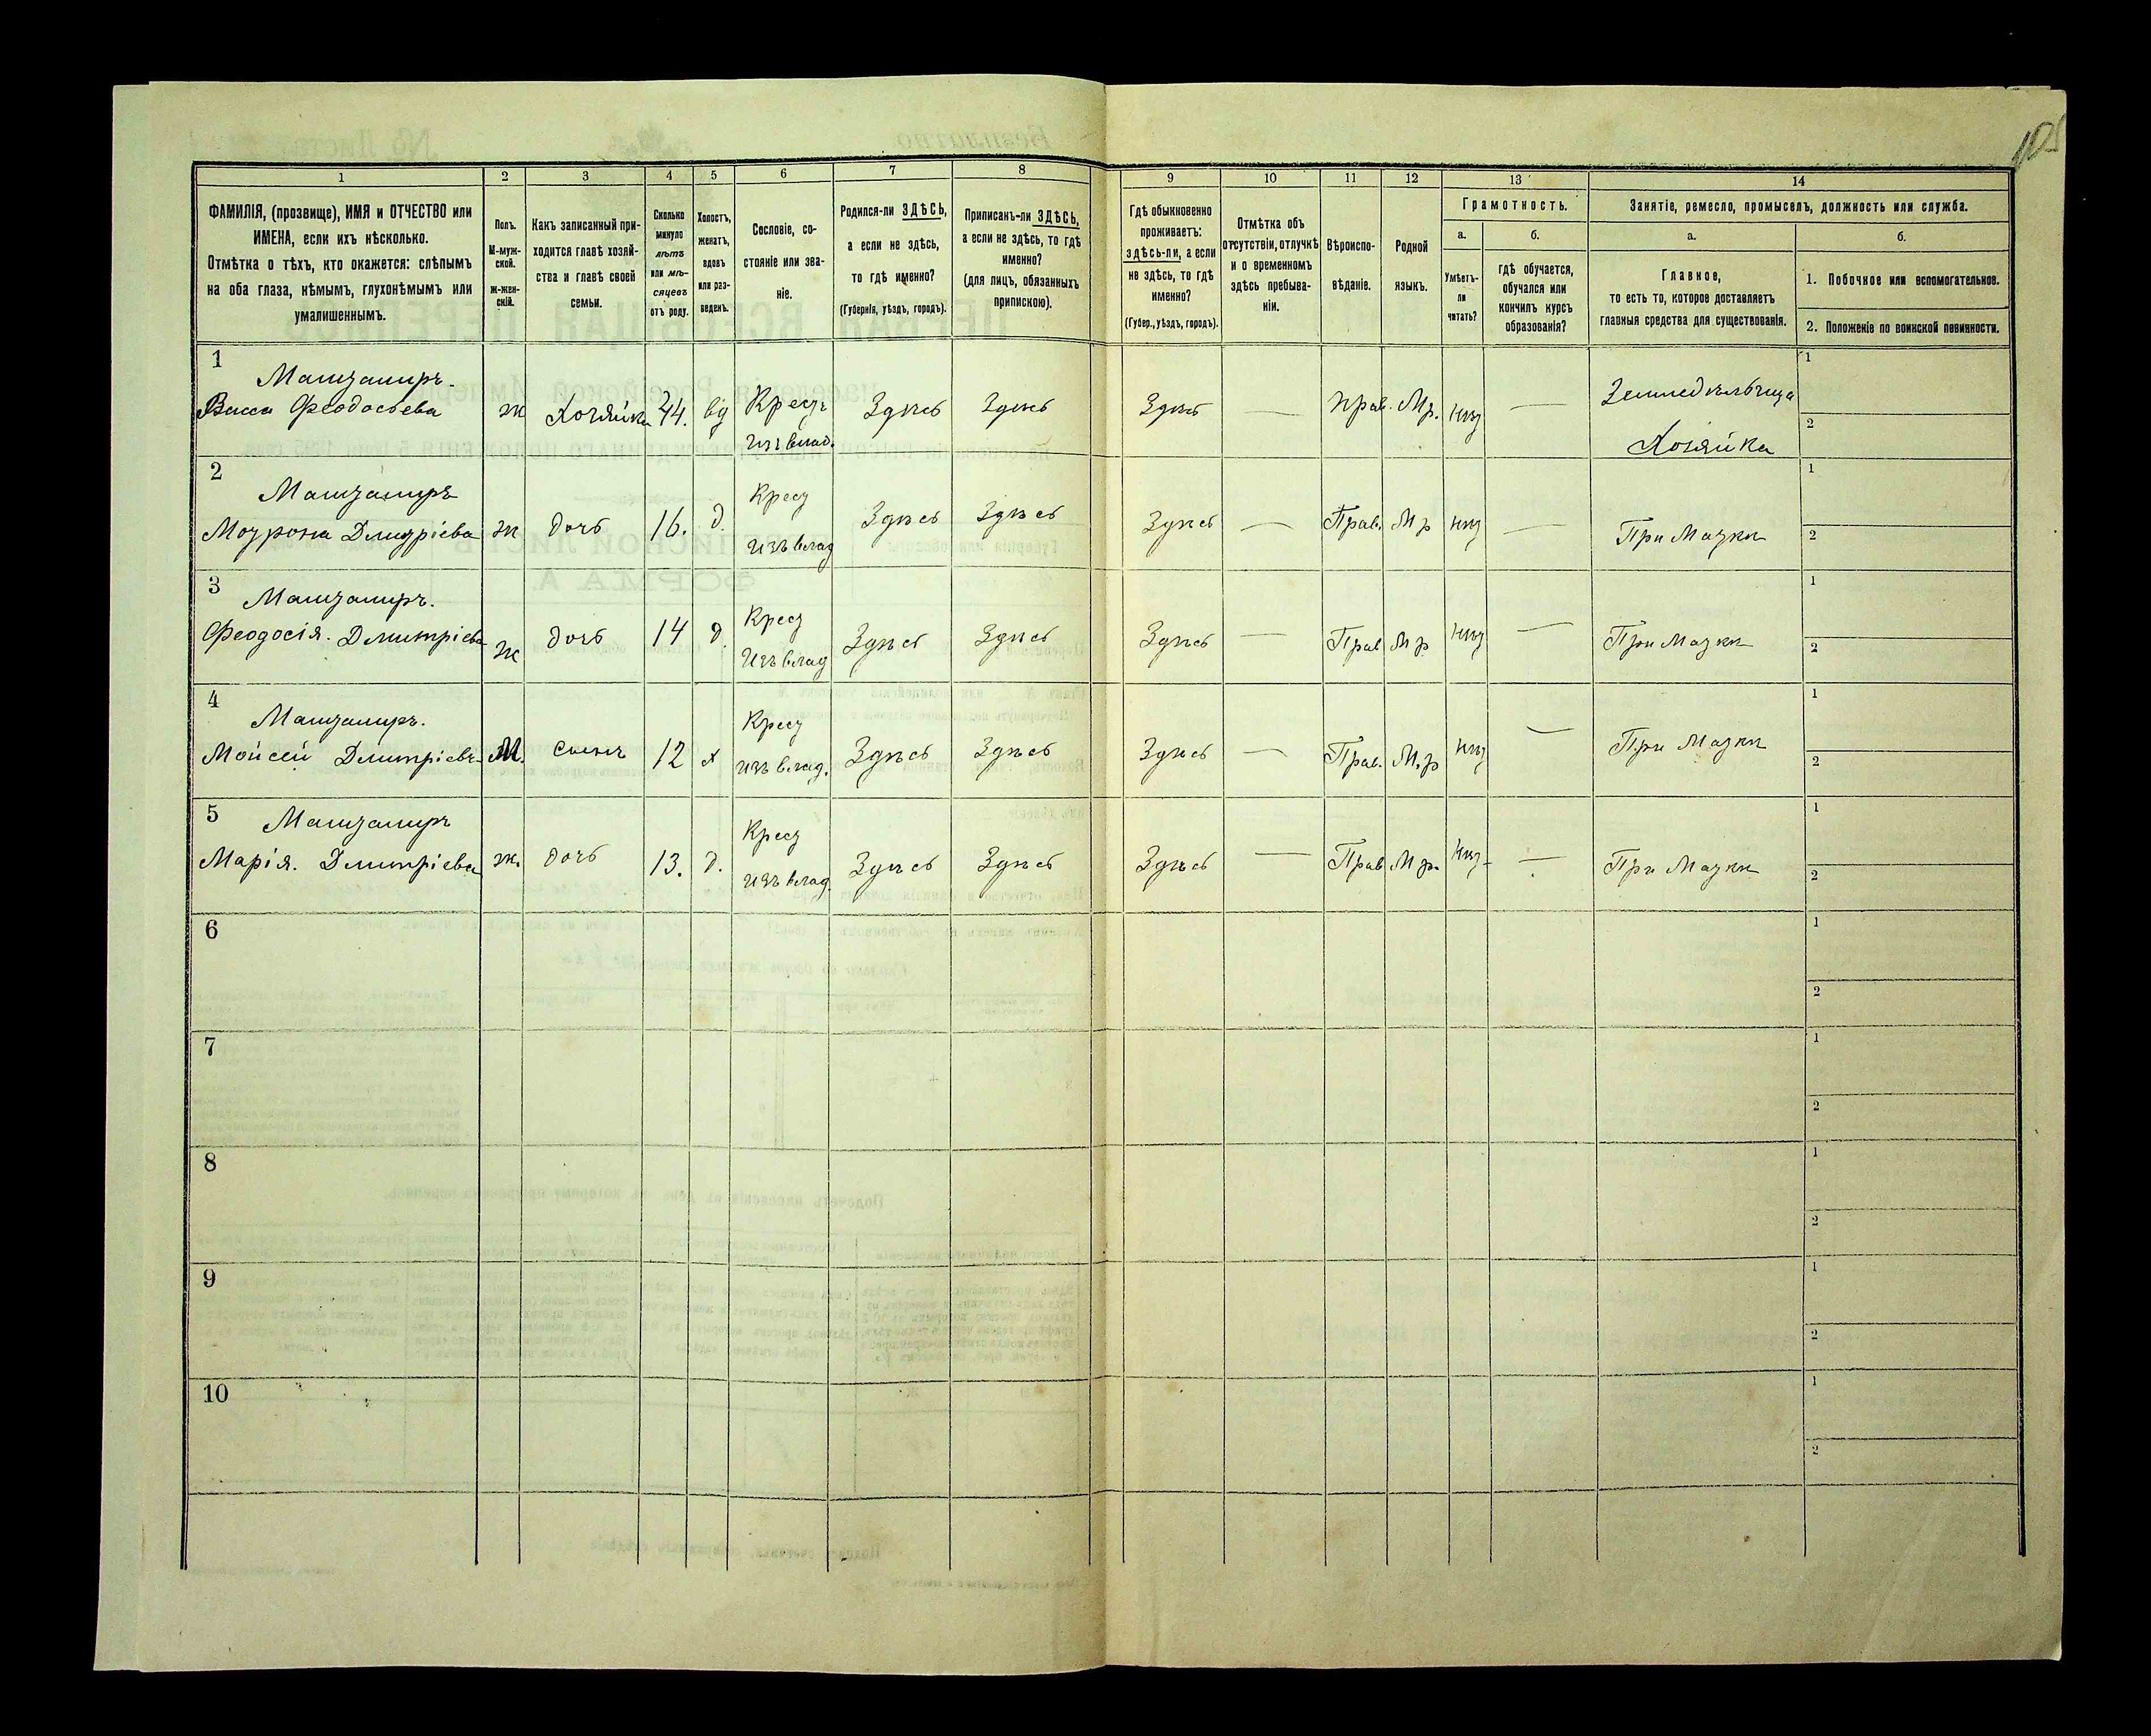 105
1 2 3 4 5 6 7 8 9 10 11 12 13 14
ФАМИЛІЯ, (прозвище), ИМЯ и ОТЧЕСТВО или ИМЕНА, если ихъ нѣсколько.
Отмѣтка о тѣхъ, кто окажется: слѣпымъ на оба глаза, нѣмымъ, глухонѣмымъ или умалишеннымъ.
Полъ. М-мужской. ж-женскій.
Какъ записанный приходится главѣ хозяйства и главѣ своей семьи.
Сколько минуло лѣтъ или мѣсяцевъ отъ роду.
Холостъ, женатъ, вдовъ или разведенъ.
Сословіе, состояніе или званіе.
Родился-ли ЗДѢСЬ, а если не здѣсь, то гдѣ именно?
(Губернія, уѣздъ, городъ).
Приписанъ-ли ЗДѢСЬ, а если не здѣсь, то гдѣ именно?
(для лицъ, обязанныхъ припискою).
Гдѣ обыкновенно проживаетъ: здѣсь-ли, а если не здѣсь, то гдѣ именно?
(Губер., уѣздъ, городъ).
Отмѣтка объ отсутствіи, отлучкѣ и о временномъ здѣсь пребываніи.
Вѣроисповѣданіе.
Родной языкъ.
Грамотность.
а. Умѣетъ-ли читать?
б. гдѣ обучается, обучался или кончилъ курсъ образованія?
Занятіе, ремесло, промыселъ, должность или служба.
а. Главное, то есть то, которое доставляетъ главныя средства для существованія.
б.
1. Побочное или вспомогательное.
2. Положеніе по воинской повинности.
1
Васса Феодосьева ж Хозяйка 44. вд Крест изъ влад. Здѣсь Здѣсь Здѣсь — Прав. Мр. нѣт — Земледѣльчица Хозяйка 1 2
2
Мотрона Дмитріева ж дочь 16. д. Крест изъ влад Здѣсь Здѣсь Здѣсь — Прав. Мр нѣт — При Матки 1 2
3
Феодосія. Дмитріева ж дочь 14 д. Крест изъ влад Здѣсь Здѣсь Здѣсь — Прав Мр нѣт — При Матки 1 2
4
Мойсей Дмитріевъ М. сынъ 12 х Крест изъ влад. Здѣсь Здѣсь Здѣсь — Прав. М.р нѣт — При Матки 1 2
5
Марія. Дмитріева ж. дочь 13. д. Крест изъ влад. Здѣсь Здѣсь Здѣсь — Прав Мр. нѣт — При Матки 1 2
6 1 2
7 1 2
8 1 2
9 1 2
10 1 2